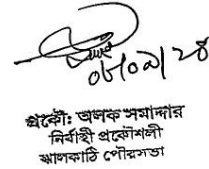 ০৮০৯/২৪
প্রকৌ: অলক সমাদ্দার
নির্বাহী প্রকৌশলী
ঝালকাঠি পৌরসভা